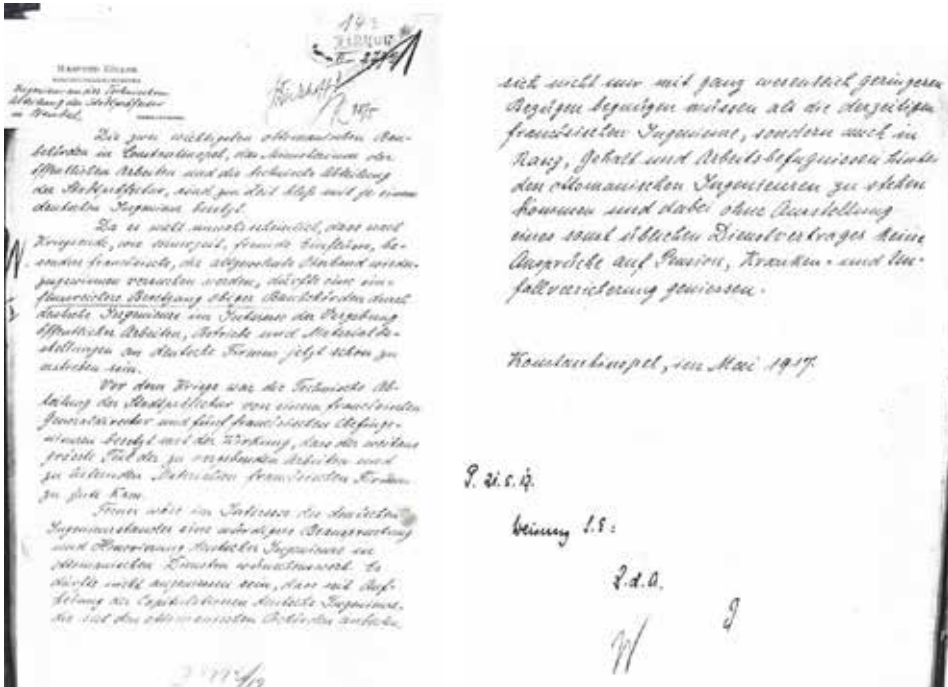 Ingenieur an der Technischen
Abteilung der Stadtpräfectur
Die zwei wichtigsten ottomanischen Bau-
behörden in Constantinopel, das Ministerium der
öffentlichen Arbeiten und die technische Abteilung
der Stadtpräfectur, sind zur Zeit bloß mit je einem
deutschen Ingenieur besetzt.
Da es wohl unvermeidlich, dass nach
Kriegsende, wie seinerzeit, fremde Einflüsse, be-
sonders französische, die altgewohnte Oberhand wieder-
zugewinnen versuchen werden, dürfte eine ein-
flussreichere Besetzung obiger Baubehörden durch
deutsche Ingenieure im Interesse der Vergebung
öffentlicher Arbeiten, Betriebe und Materialbe-
stellungen an deutsche Firmen jetzt schon zu
erstreben sein.
Vor dem Kriege war die Technische Ab-
teilung der Stadtpräfectur von einem französischen
Generaldirector und fünf französischen Chefinge-
nieuren besetzt mit der Wirkung, dass der weitaus
grösste Teil der zu vergebenden Arbeiten und
zu liefernden Materialien französischen Firmen
zu gute kam.
Ferner wäre im Interesse des deutschen
Ingenieurstandes eine würdigere Beanspruchung
und Honorierung deutscher Ingenieure in
ottomanischen Diensten wünschenswert. Es
dürfte nicht angemessen sein, dass mit Auf-
hebung der Capitulationen deutsche Ingenieure,
die bei den ottomanischen Behörden arbeiten,
sich nicht nur mit ganz wesentlich geringeren
Bezügen begnügen müssen als die derzeitigen
französischen Ingenieure, sondern auch in
Rang, Gehalt und Arbeitsbefugnissen hinter
den ottomanischen Ingenieuren zu stehen
kommen und dabei ohne Ausstellung
eines sonst üblichen Dienstvertrages keine
Ansprüche auf Pension, Kranken- und Un-
fallversicherung geniessen.
Konstantinopel, im Mai 1917.
P. 21.5.17.
S.E:
Z.d.A.